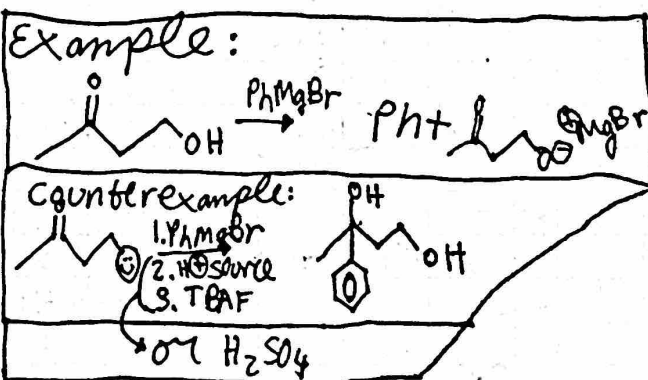 Example:
O
OH
PhMgBr
Ph +
O⊖ ⊕MgBr
Counterexample:
1. PhMgBr
2. H⊕ source
3. TBAF
or H₂SO₄
OH
OH